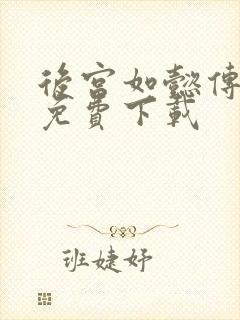 後宮如懿傳
免費下載
班婕妤